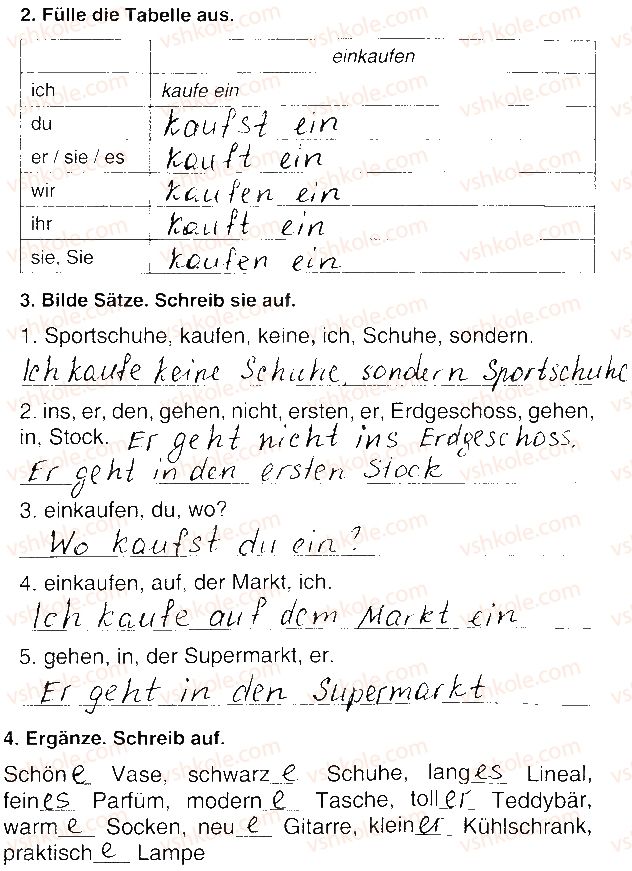 2. Fülle die Tabelle aus.
einkaufen
ich kaufe ein
du kaufst ein
er / sie / es kauft ein
wir kaufen ein
ihr kauft ein
sie, Sie kaufen ein
3. Bilde Sätze. Schreib sie auf.
1. Sportschuhe, kaufen, keine, ich, Schuhe, sondern.
Ich kaufe keine Schuhe, sondern Sportschuhe
2. ins, er, den, gehen, nicht, ersten, er, Erdgeschoss, gehen,
in, Stock. Er geht nicht ins Erdgeschoss.
Er geht in den ersten Stock
3. einkaufen, du, wo?
Wo kaufst du ein?
4. einkaufen, auf, der Markt, ich.
Ich kaufe auf dem Markt ein
5. gehen, in, der Supermarkt, er.
Er geht in den Supermarkt
4. Ergänze. Schreib auf.
Schöne Vase, schwarze Schuhe, langes Lineal,
feines Parfüm, moderne Tasche, toller Teddybär,
warme Socken, neue Gitarre, kleiner Kühlschrank,
praktische Lampe
vshkole.com